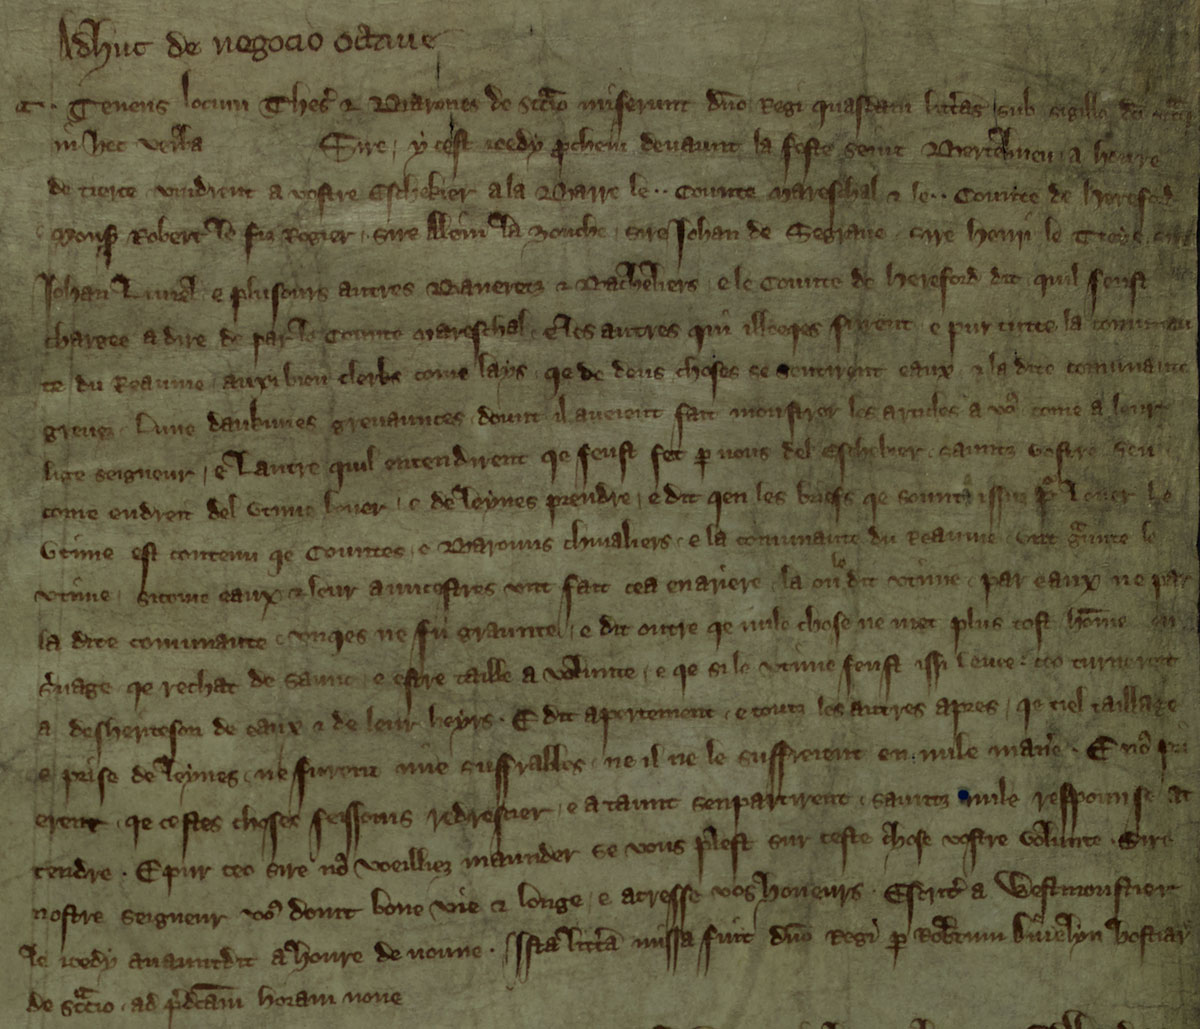 Adhuc de negocio octaue
Tenens locum Thes' & Barones de sccio miserunt dno Regi quasdam litteras sub sigillo dci sccii
in hec verba Sire, y cest ieody prchein devaunt la feste seint Bertelmeu, a houre
de tierce vindrent a vostre Eschekier a la Barre le .. Counte Mareschal & le .. Counte de Hereford
Mouns' Robert le fuz Rogier, sire Alein la Zouche, sire Johan de Segraue, sire Henri le Tyoys, sire
Johan Luuel, e plusours autres Baneretz & Bachelers, e le Counte de Hereford dit quil feust
chargee a dire de par le Counte Mareschal, e les autres qui illoeqes furent, e pur tutte la communau
te du Reaume, auxi bien clerks come lays, qe de deus choses se sentirent eaux & la dite communaute
greuez. Lune daukunes greuaunces, dount il aueient fait monstrer les articles a vos come a leur
lige seigneur, e lautre quil entendirent qe feust fet p nous del Eschekier, sauntz vostre seu
come endreit del vtime leuer, e de leynes prendre, e dit qen les briefs qe sount issuz pr leuer le
vtime est contenu qe Countes, e Barouns chiualiers, e la communaute du Reaume, vnt graunte le
vtime, sicome eaux & leur auncestres vnt fait cea enariere, la ou le dit vtime, par eaux ne par
la dite communaute vnqes ne fu graunte, e dit outre qe nule chose ne met plus tost home en
seruage qe rechat de saunc, e estre taille a volunte, e qe si le vtime feust issi leue, ceo turnereit
a desheriteson de eaux & de leur heyrs. E dit apertement, e toutz les autres apres, qe tiel taillage
e prise de leynes, ne furent mie suffrables, ne il ne le suffreient en nule manere. E nos pri
erent, qe cestes choses feissoms redrescier, e ataunt senpartirent, sauntz nule respounse at
tendre. E pur ceo sire nos voeilliez maunder se vous plest sur ceste chose vostre volunte. Sire
nostre seigneur vos doint bone vie & longe, e acresse vos honeurs. Escrit a Westmoustier
le ieody auauntdit a houre de noune. Ista littera missa fuit dno Regi p Robertum Livelyn hostiar'
de sccio, ad predictam horam none